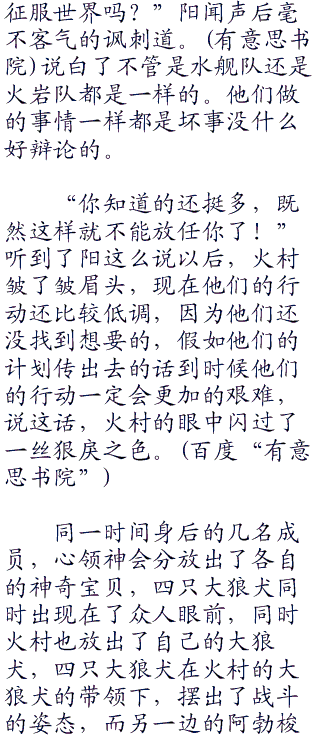 征服世界吗？”阳闻声后毫
不客气的讽刺道。(有意思书
院)说白了不管是水舰队还是
火岩队都是一样的。他们做
的事情一样都是坏事没什么
好辩论的。
“你知道的还挺多，既
然这样就不能放任你了！”
听到了阳这么说以后，火村
皱了皱眉头，现在他们的行
动还比较低调，因为他们还
没找到想要的，假如他们的
计划传出去的话到时候他们
的行动一定会更加的艰难，
说这话，火村的眼中闪过了
一丝狠戾之色。(百度“有意
思书院”)
同一时间身后的几名成
员，心领神会分放出了各自
的神奇宝贝，四只大狼犬同
时出现在了众人眼前，同时
火村也放出了自己的大狼
犬，四只大狼犬在火村的大
狼犬的带领下，摆出了战斗
的姿态，而另一边的阿勃梭